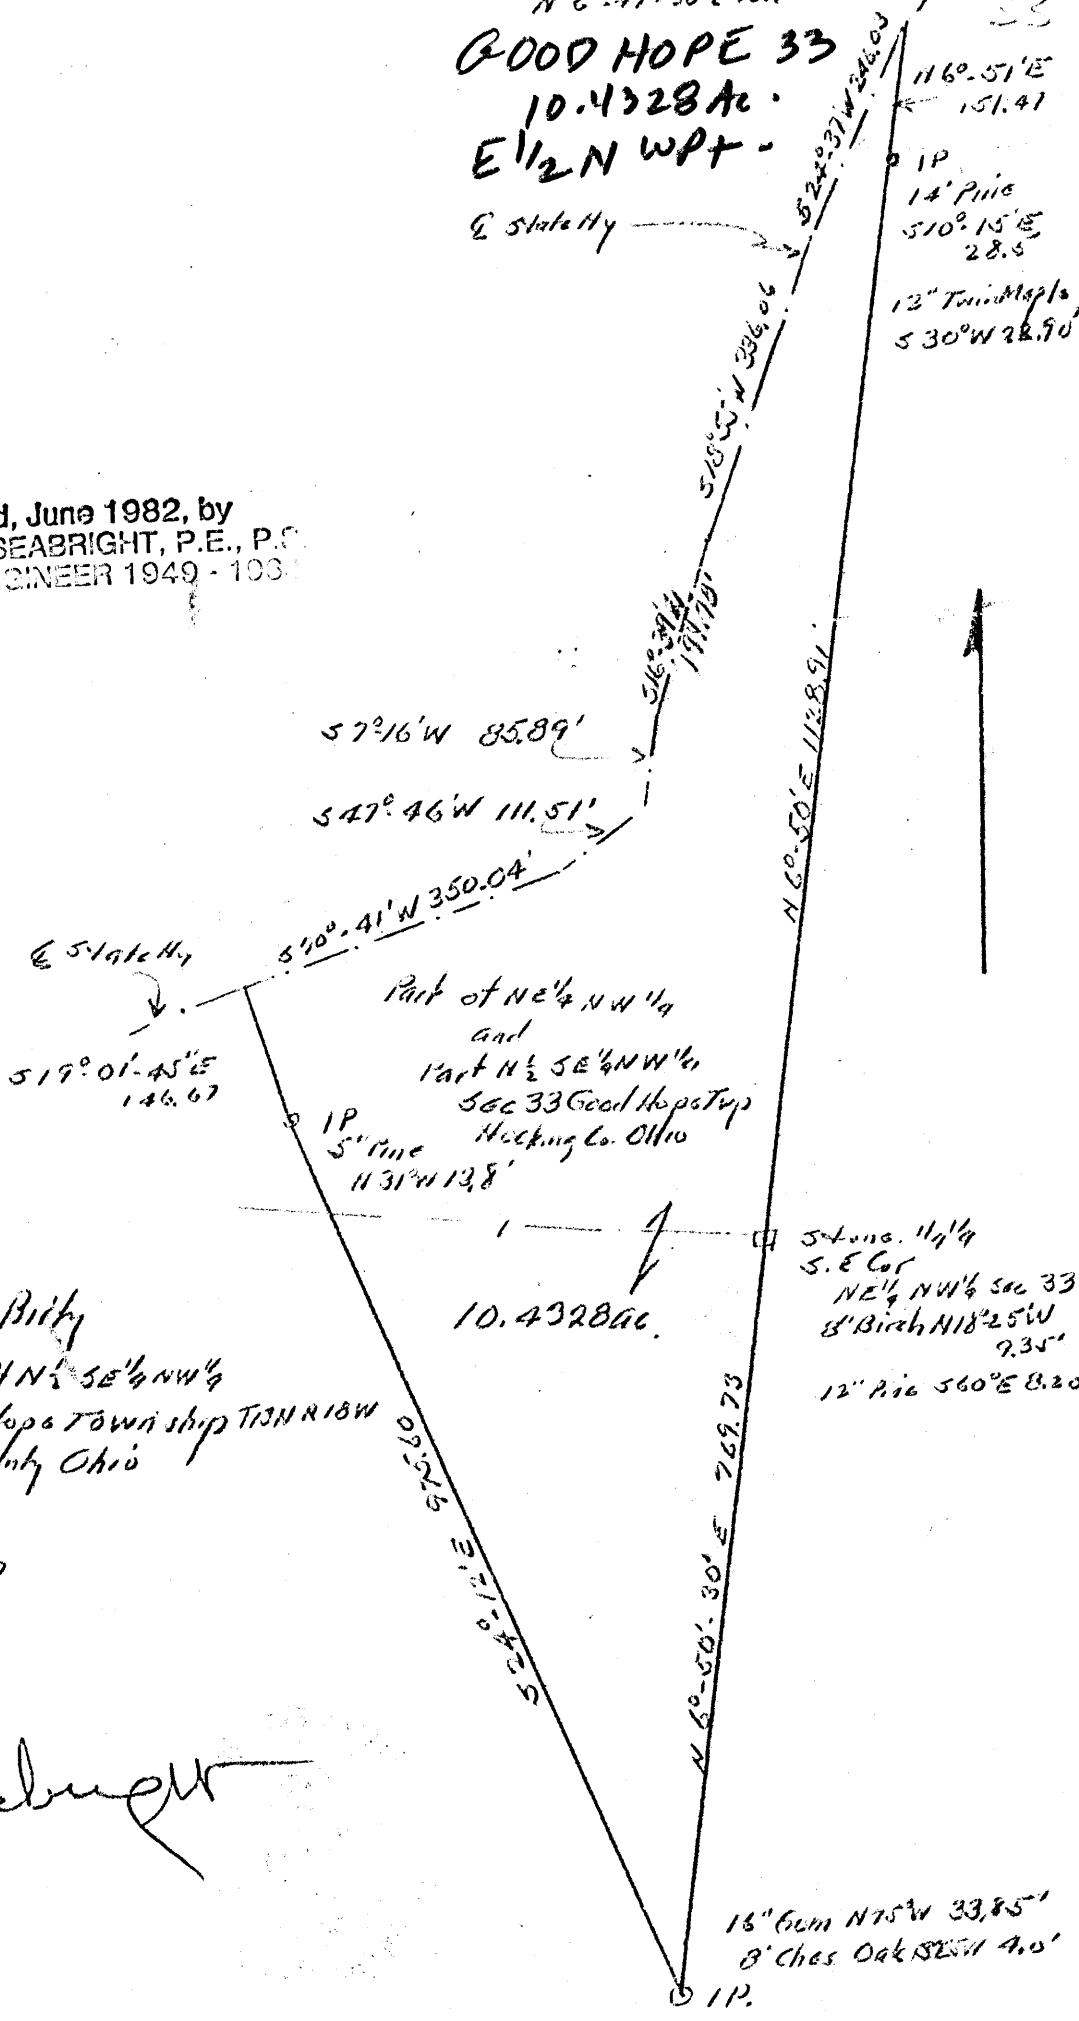 GOOD HOPE 33
10.4328 Ac.
E 1/2 N W Pt -
S24°-37'W 246.03
N6°-51'E
151.47
IP
14" Pine
S10°-15'E
28.5
12" Twin Maple
S 30°W 28.90'
℄ State Hy
S18°-55'W 336.06
d, June 1982, by
SEABRIGHT, P.E., P.S.
GINEER 1949 -
S7°16'W 85.89'
S47°46'W 111.51'
S70°-41'W 350.04'
N6°-50'E 1128.91'
℄ State Hy
S19°-01'-45"E
146.67
Part of NE 1/4 NW 1/4
and
Part N 1/2 SE 1/4 NW 1/4
Sec 33 Good Hope Twp
Hocking Co. Ohio
IP
5" Pine
N31°W 13.8'
Stone. 1/4 1/4
S.E Cor
NE 1/4 NW 1/4 Sec 33
8" Birch N18°25'W
9.35'
12" Pine S60°E 8.20
10.4328 ac.
N 1/2 SE 1/4 NW 1/4
ope Township T13N R18W
nty Ohio
S24°-12'E 975.60
N 6°-50'-30" E 769.73
16" Gum N75°W 33.85'
8" Ches Oak 4.0'
IP.